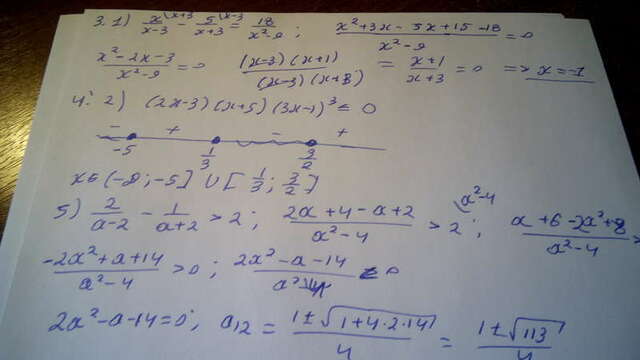 3.1) x(x+3/x-3 - 5(x-3/x+3 = 18/x²-9 ; x²+3x-5x+15-18/x²-9 = 0
x²-2x-3/x²-9 = 0 (x-3)(x+1)/(x-3)(x+3) = x+1/x+3 = 0 => x=-1
4. 2) (2x-3)(x+5)(3x-1)³ ≤ 0
- + - +
-5 1/3 3/2
x∈(-∞;-5] ∪ [1/3; 3/2]
5) 2/a-2 - 1/a+2 > 2 ; 2a+4-a+2/a²-4 > 2 (a²-4 ; a+6-2a²+8/a²-4 >
-2a²+a+14/a²-4 > 0 ; 2a²-a-14/a²-4 < 0
2a²-a-14=0; a12 = 1±√1+4·2·14/4 = 1±√113/4